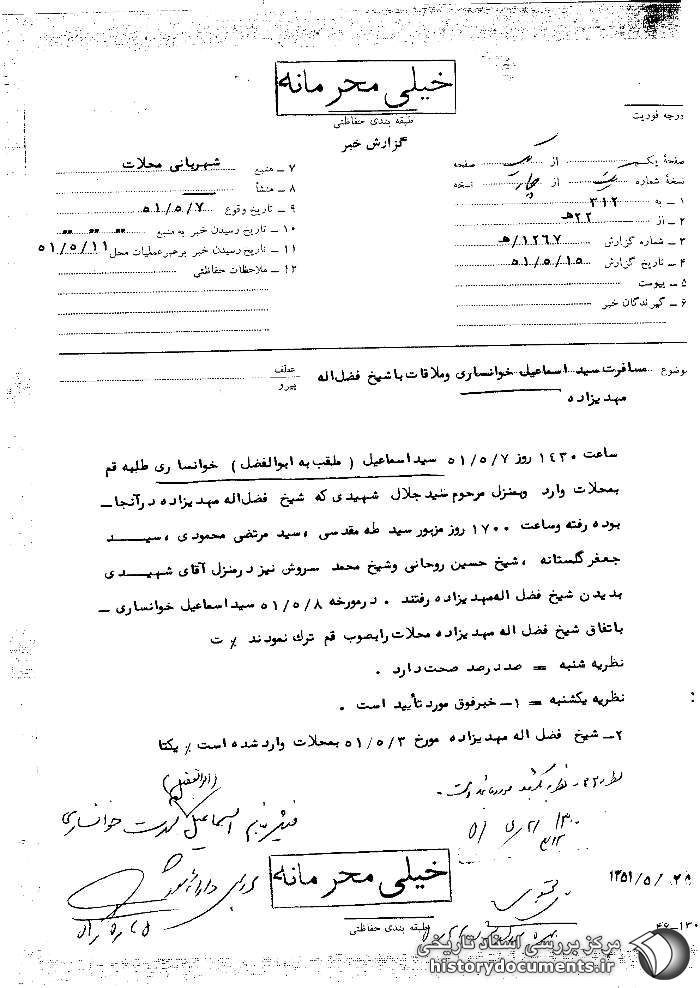 خیلی محرمانه
طبقه بندی حفاظتی
گزارش خبر
درجه فوریت
صفحهٔ یک از یک صفحه
نسخهٔ شماره از چهار نسخه
۱ ـ به ۳۱۲
۲ ـ از ۲۲هـ
۳ ـ شماره گزارش ۱۲۶۷/هـ
۴ ـ تاریخ گزارش ۵۱/۵/۱۵
۵ ـ پیوست
۶ ـ گیرندگان خبر
۷ ـ منبع شهربانی محلات
۸ ـ منشأ
۹ ـ تاریخ وقوع ۵۱/۵/۷
۱۰ ـ تاریخ رسیدن خبر به منبع
۱۱ ـ تاریخ رسیدن خبر برهبر عملیات محل ۵۱/۵/۱۱
۱۲ ـ ملاحظات حفاظتی
موضوع مسافرت سید اسماعیل خوانساری وملاقات با شیخ فضل‌اله
مهدیزاده
عطف
پیرو
ساعت ۱۴۳۰ روز ۵۱/۵/۷ سیداسماعیل ( ملقب به ابوالفضل ) خوانساری طلبه قم
بمحلات وارد وبمنزل مرحوم سید جلال شهیدی که شیخ فضل‌اله مهدیزاده درآنجا ـ
بوده رفته وساعت ۱۷۰۰ روز مزبور سید طه مقدسی ، سید مرتضی محمودی ، سیـــد
جعفر گلستانه ، شیخ حسین روحانی وشیخ محمد سروش نیز درمنزل آقای شهیـــدی
بدیدن شیخ فضل اله مهدیزاده رفتند . درمورخه ۵۱/۵/۸ سیداسماعیل خوانساری ـ
باتفاق شیخ فضل اله مهدیزاده محلات رابصوب قم ترك نمودند ٪ ت
نظریه شنبه = صددرصد صحت دارد .
نظریه یکشنبه = ۱ـ خبرفوق مورد تأیید است .
۲ـ شیخ فضل اله مهدیزاده مورخ ۵۱/۵/۳ بمحلات وارد شده است ٪ یکتا
(ابوالفضل)
اسماعیل خوانساری
خیلی محرمانه
طبقه بندی حفاظتی
۱۳۵۱/۵/۲۸
۴۶-۱۳۰
مرکز بررسی اسناد تاریخی
historydocuments.ir